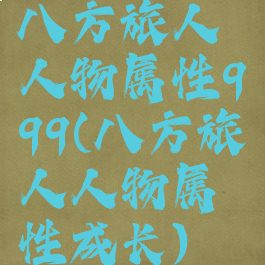 八方旅人
人物属性9
99(八方旅
人人物属
性成长)